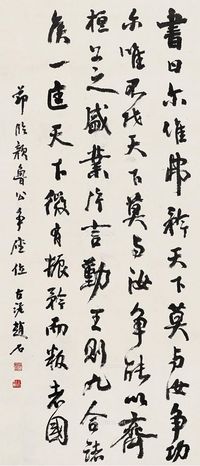 書曰尔惟弗矜天下莫与汝争功
尔唯不伐天下莫与汝争能以齊
桓公之盛業片言勤王則九合諸
侯一匡天下微有振矜而叛者國
節臨顏魯公争座位 古泥趙石